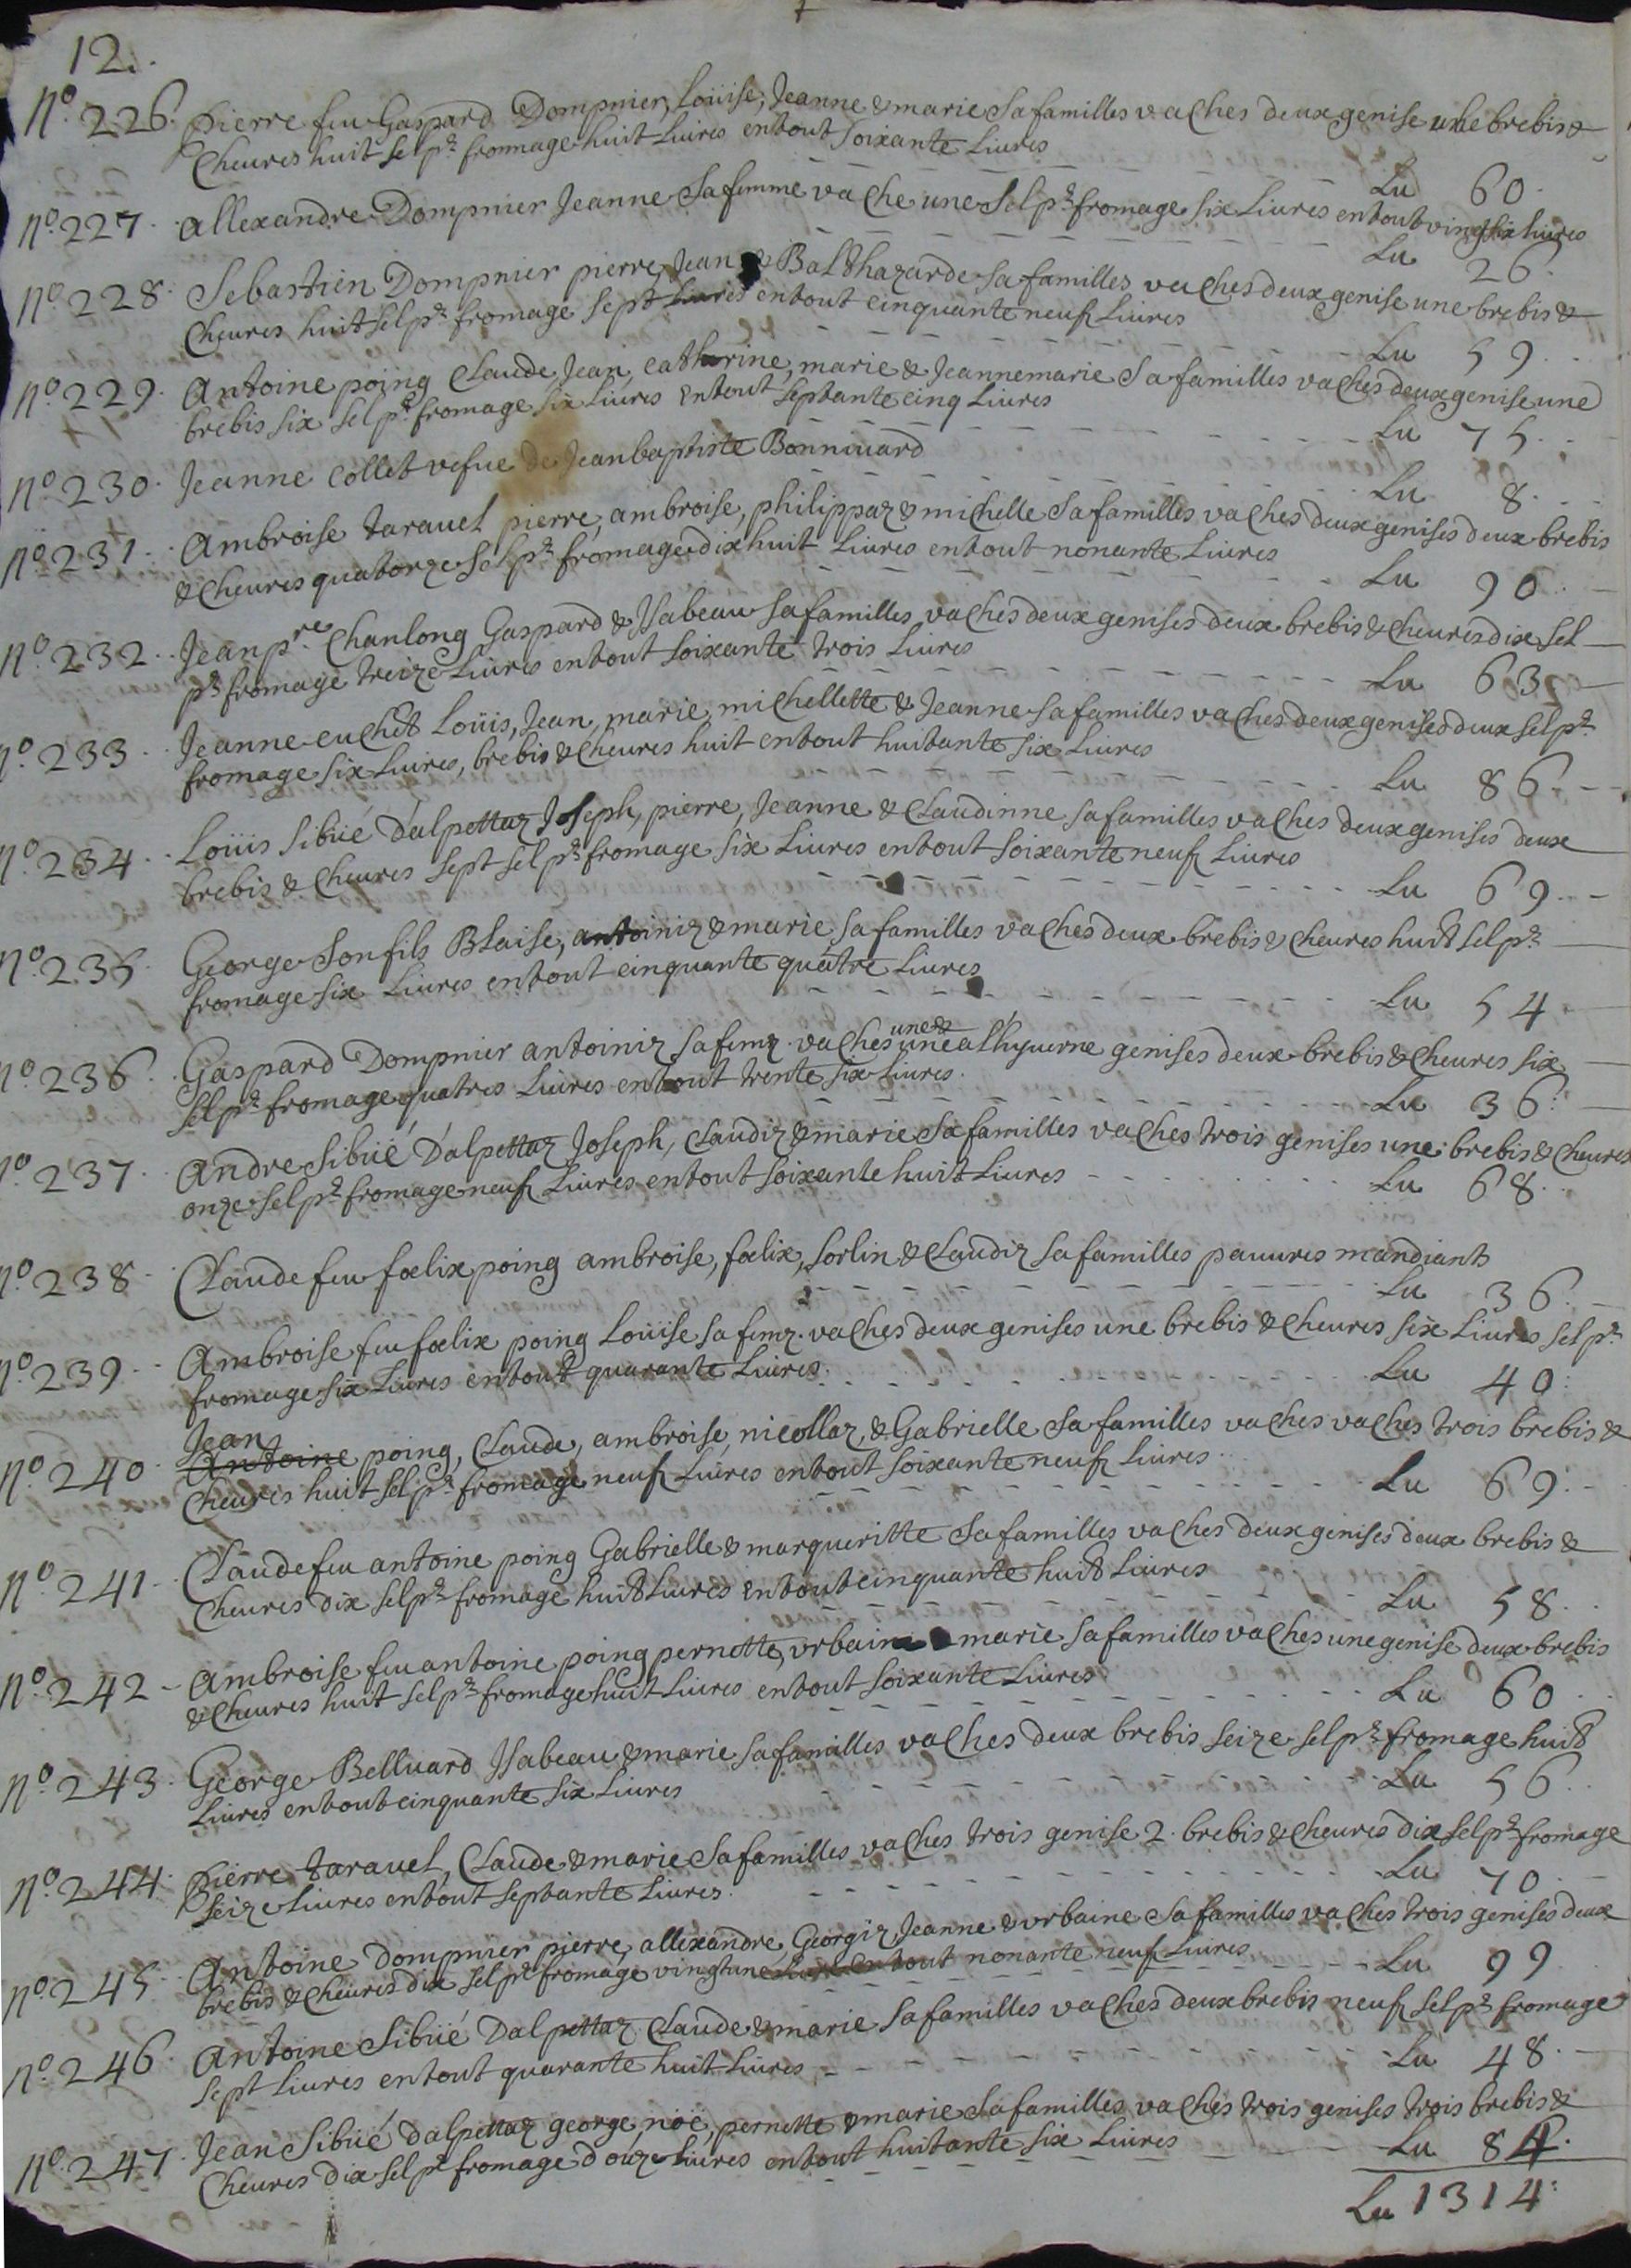 12.
N.º 226. pierre feu Gaspard Dompnier, Loüise, Jeanne & marie Sa familles vaches deux genise une brebis &
Cheures huit sel pr. fromage huit Liures entout soixante Liures
Lu 60.
N.º 227. allexandre Dompnier Jeanne Sa femme vache une Sel pr. fromage six Liures entout vingtsix liures
Lu 26.
N.º 228. Sebastien Dompnier pierre, Jean & Balthazarde Sa familles vaches deux genise une brebis &
Cheures huit sel pr. fromage sept Liures entout cinquante neuf Liures
Lu 59.
N.º 229. Antoine poing Claude, Jean, catherine, marie & Jeannemarie Sa familles vaches deux genise une
brebis six sel pr. fromage six Liures entout septante cinq Liures
Lu 75.
N.º 230. Jeanne Collet vefue de Jean baptiste Bonniuard
Lu 8.
N.º 231. Ambroise tarauel pierre, ambroise, philippaz & michelle Sa familles vaches deux genises deux brebis
& Cheures quatorze Sel pr. fromage dix huit Liures entout nonante Liures
Lu 90.
N.º 232. Jean p.re Chanlong Gaspard & Isabeau Sa familles vaches deux genises deux brebis & Cheures dix Sel
pr. fromage treize Liures entout soixante trois Liures
Lu 63
N.º 233. Jeanne euchet Loüis, Jean, marie, michellette & Jeanne Sa familles vaches deux genises deux sel pr.
fromage six Liures, brebis & Cheures huit entout huitante six Liures
Lu 86.
N.º 234. Loüis Sibüé Dalpettaz Joseph, pierre, Jeanne & Claudinne Sa familles vaches deux genises deux
brebis & Cheures sept sel pr. fromage six Liures entout soixante neuf Liures
Lu 69.
N.º 235. George Son fils Blaise, antoiniz & marie Sa familles vaches deux brebis & cheures huit sel pr.
fromage six Liures entout cinquante quatre Liures
Lu 54
N.º 236. Gaspard Dompnier antoiniz Sa femz. vaches une & une a l'hyuerne genises deux brebis & Cheures six
Sel pr. fromage quatres Liures entout trente six Liures.
Lu 36.
N.º 237. Andre Sibüé Dalpettaz Joseph, Claudiz & marie Sa familles vaches trois genises une brebis & Cheures
onze sel pr. fromage neuf Liures entout soixante huit Liures
Lu 68.
N.º 238. Claude feu foelix poing ambroise, foelix, Sorlin & Claudiz Sa familles pauures mandiants
Lu 36.
N.º 239. Ambroise feu foelix poing Loüise Sa femz. vaches deux genises une brebis & Cheures six Liures sel pr.
fromage six Liures entout quarante Liures.
Lu 40.
Jean
N.º 240. Antoine poing, Claude, ambroise, nicollaz, & Gabrielle Sa familles vaches vaches trois brebis &
Cheures huit sel pr. fromage neuf Liures entout soixante neuf Liures
Lu 69.
N.º 241. Claude feu antoine poing Gabrielle & margueritte Sa familles vaches deux genises deux brebis &
Cheures dix sel pr. fromage huit Liures entout cinquante huit Liures
Lu 58.
N.º 242. Ambroise feu antoine poing pernette, vrbaine marie Sa familles vaches une genise deux brebis
& Cheures huit sel pr. fromage huit Liures entout soixante Liures
Lu 60
N.º 243. George Belluard Isabeau & marie Sa familles vaches deux brebis seize sel pr. fromage huit
Liures entout cinquante six Liures
Lu 56.
N.º 244. pierre tarauel, Claude & marie Sa familles vaches trois genise 2. brebis & Cheures dix sel pr. fromage
seize Liures entout septante Liures.
Lu 70.
N.º 245. Antoine Dompnier pierre, allexandre, Georgiz, Jeanne & vrbaine Sa familles vaches trois genises deux
brebis & Cheures dix sel pr. fromage vingtune Liures entout nonante neuf Liures
Lu 99
N.º 246. Antoine Sibüé Dalpettaz Claude & marie Sa familles vaches deux brebis neuf sel pr. fromage
sept Liures entout quarante huit Liures
Lu 48.
N.º 247. Jean Sibüé Dalpettaz george, noë, pernette & marie Sa familles vaches trois genises trois brebis &
Cheures dix sel pr. fromage douze Liures entout huitante six Liures
Lu 84.
Lu 1314.